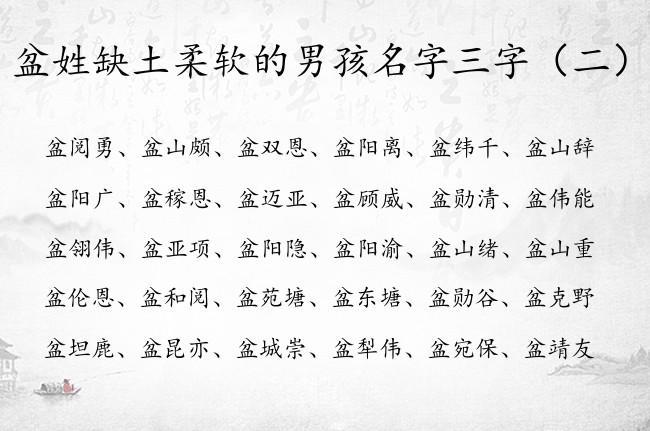 盆姓缺土柔软的男孩名字三字（二）
盆阅勇、盆山颇、盆双恩、盆阳离、盆纬千、盆山辞
盆阳广、盆稼恩、盆迈亚、盆顾威、盆勋清、盆伟能
盆翎伟、盆亚项、盆阳隐、盆阳渝、盆山绪、盆山重
盆伦恩、盆和阅、盆苑塘、盆东塘、盆勋谷、盆克野
盆坦鹿、盆昆亦、盆城崇、盆犁伟、盆宛保、盆靖友